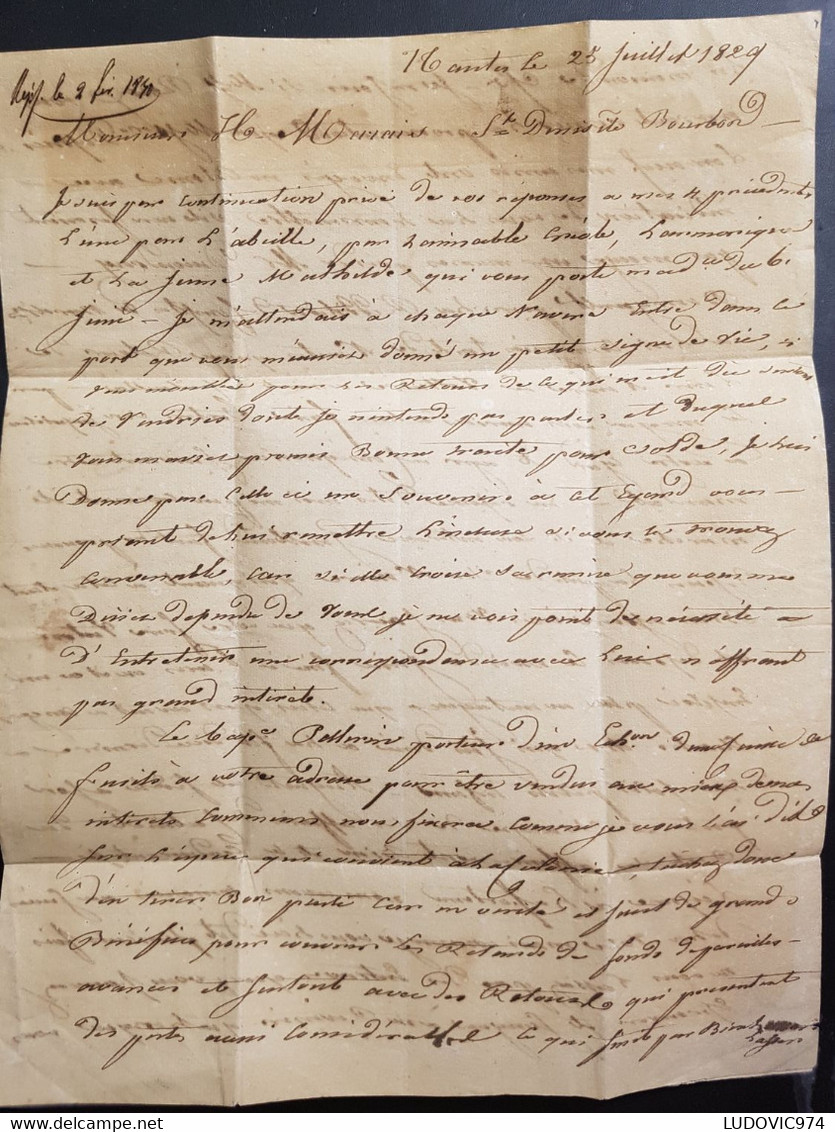 Nantes le 25 Juillet 1829
Rép. le 2 fév. 1830
Monsieur H Marais St Denis île Bourbon
Je suis par Continuation privé de vos réponses a mes 4 précédentes
L'une par L'abeille, par L'aimable Créole, L'armorique
et La Jeune Mathilde qui vous porte ma d.re du 6.
Juin — Je m'attendais à chaque Navire Entré dans ce
port que vous m'auriez donné un petit signe de Vie, si
vous pour ses Retours de ce qui m'est du
de dont je n'entends pas parler et duquel
vous m'aviez promis Bonne traite pour Solde, je lui
Donne par Celle ci un Souvenir à cet Egard vous
priant de lui remettre L'incluse si vous le trouvez
Convenable, car si elle que vous me
Disiez depends de vous je ne vois point de nécessité a
D'Entretenir une correspondance avec Lui n'offrant
pas grand intérêts.
Le Cap.e Pellerin porteur d'un Ech.on d'une de
fusils à votre adresse pour être vendus au mieux de nos
intérêts Communs nous fixera comme je vous l'ai dit
sur L'espece qui convient à La Colonie, tachez donc
d'en tirer Bon parti car en vérité il faut de grands
Bénéfices pour couvrir les Retards de fonds de pareilles
avances et surtout avec des Retours qui présentent
des pertes aussi Considérables ce qui